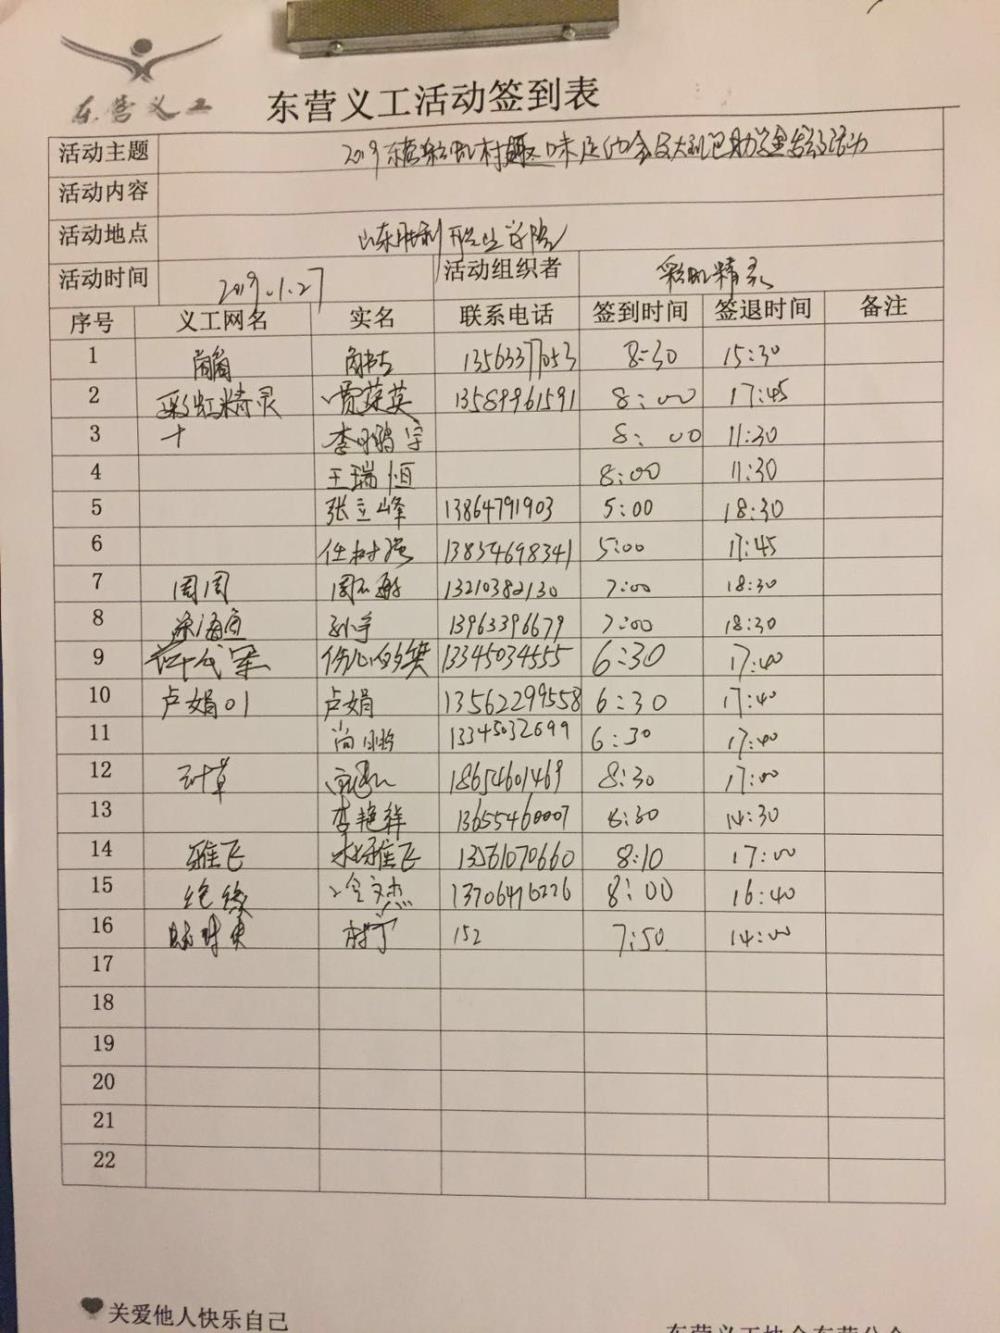 东营义工
东营义工活动签到表
活动主题 2019 村趣味运动会及大礼包助学 活动
活动内容
活动地点 山东胜利职业学院
活动时间 2019.1.27 活动组织者 彩虹精灵
序号 义工网名 实名 联系电话 签到时间 签退时间 备注
1 13563377053 8:30 15:30
2 彩虹精灵 贾荣英 13589961591 8:00 17:45
3 十 李 宇 8:00 11:30
4 王瑞恒 8:00 11:30
5 张立峰 13864791903 5:00 18:30
6 任树强 13854698341 5:00 17:45
7 周周 13210382130 7:00 18:30
8 13963396679 7:00 18:30
9 伤心的笑 13345034555 6:30 17:40
10 卢娟01 卢娟 13562299558 6:30 17:40
11 尚 13345032699 6:30 17:40
12 18654601469 8:30 17:00
13 李艳祥 13655460007 8:30 14:30
14 雅飞 雅飞 13561070660 8:10 17:00
15 绝缘 文杰 13706476226 8:00 16:40
16 152 7:50 14:00
17
18
19
20
21
22
关爱他人快乐自己
东营义工协会东营分会